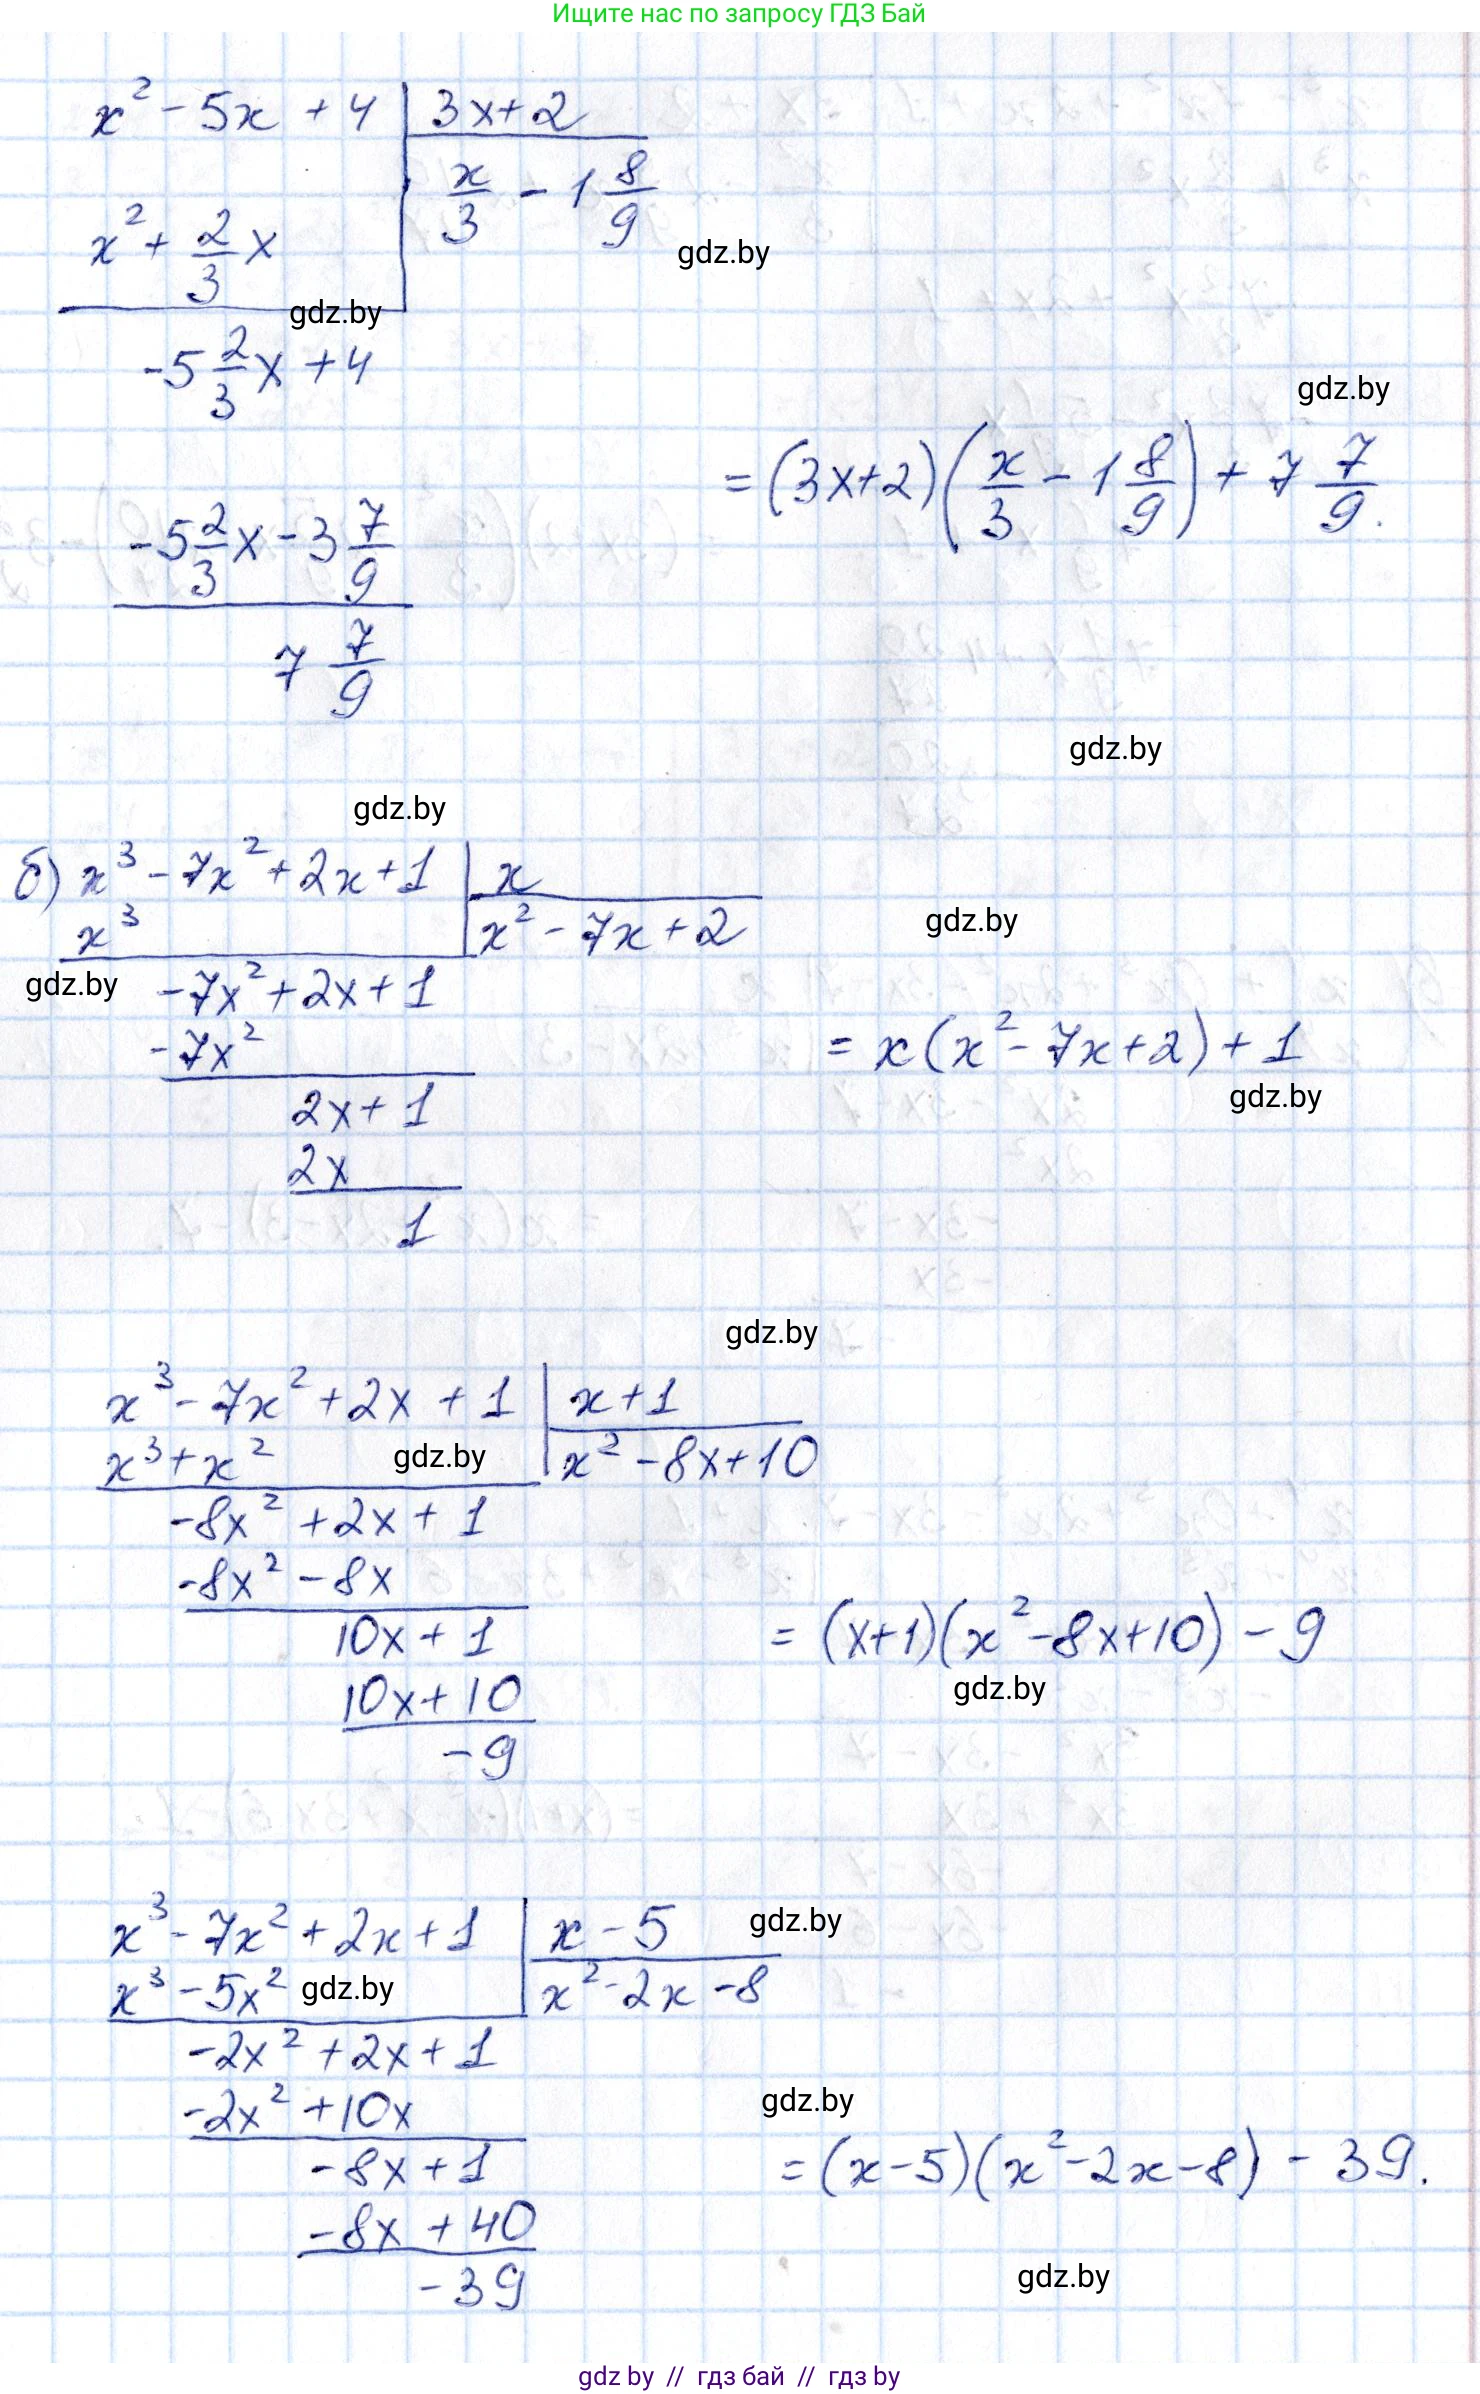 Ищите нас по запросу ГДЗ Бай
x² - 5x + 4 | 3x + 2
x² + 2/3 x | x/3 - 1 8/9
gdz.by
gdz.by
-5 2/3 x + 4
gdz.by
= (3x+2)(x/3 - 1 8/9) + 7 7/9.
-5 2/3 x - 3 7/9
7 7/9
gdz.by
gdz.by
б) x³ - 7x² + 2x + 1 | x
x³ | x² - 7x + 2
gdz.by
gdz.by
-7x² + 2x + 1
-7x²
= x(x² - 7x + 2) + 1
gdz.by
2x + 1
2x
1
gdz.by
x³ - 7x² + 2x + 1 | x + 1
x³ + x² | x² - 8x + 10
gdz.by
-8x² + 2x + 1
-8x² - 8x
10x + 1
= (x+1)(x² - 8x + 10) - 9
gdz.by
10x + 10
-9
x³ - 7x² + 2x + 1 | x - 5
gdz.by
x³ - 5x² | x² - 2x - 8
gdz.by
-2x² + 2x + 1
-2x² + 10x
gdz.by
-8x + 1
= (x-5)(x² - 2x - 8) - 39.
-8x + 40
-39
gdz.by
gdz by // гдз бай // gdz by